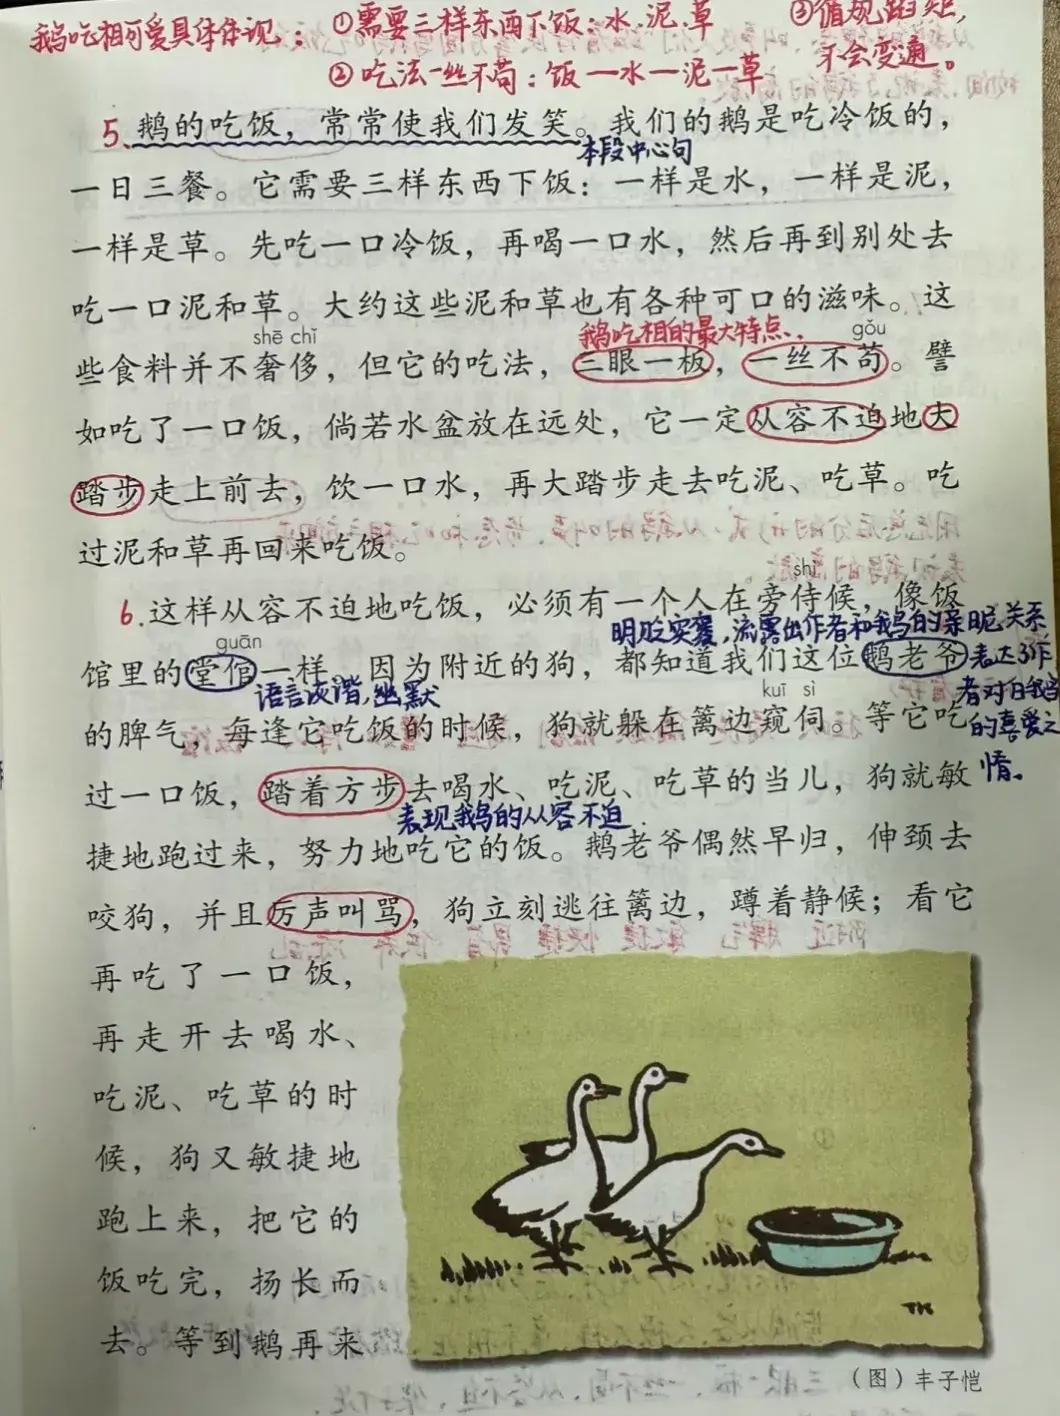 鹅吃相可爱具体体现：①需要三样东西下饭：水.泥.草
③循规蹈矩，不会变通。
②吃法一丝不苟：饭—水—泥—草
5.鹅的吃饭，常常使我们发笑。我们的鹅是吃冷饭的，
本段中心句
一日三餐。它需要三样东西下饭：一样是水，一样是泥，
一样是草。先吃一口冷饭，再喝一口水，然后再到别处去
吃一口泥和草。大约这些泥和草也有各种可口的滋味。这
shē chǐ
鹅吃相的最大特点.
gǒu
些食料并不奢侈，但它的吃法，三眼一板，一丝不苟。譬
如吃了一口饭，倘若水盆放在远处，它一定从容不迫地大
踏步走上前去，饮一口水，再大踏步走去吃泥、吃草。吃
过泥和草再回来吃饭。
shì
6.这样从容不迫地吃饭，必须有一个人在旁侍候，像饭
明贬实褒，流露出作者和鹅的亲昵关系
guān
馆里的堂倌一样。因为附近的狗，都知道我们这位鹅老爷
表达了作者对白鹅的喜爱之情。
语言诙谐，幽默
kuī sì
的脾气，每逢它吃饭的时候，狗就躲在篱边窥伺。等它吃
过一口饭，踏着方步去喝水、吃泥、吃草的当儿，狗就敏
表现鹅的从容不迫.
捷地跑过来，努力地吃它的饭。鹅老爷偶然早归，伸颈去
咬狗，并且厉声叫骂，狗立刻逃往篱边，蹲着静候；看它
再吃了一口饭，
再走开去喝水、
吃泥、吃草的时
候，狗又敏捷地
跑上来，把它的
饭吃完，扬长而
去。等到鹅再来
TK
（图）丰子恺